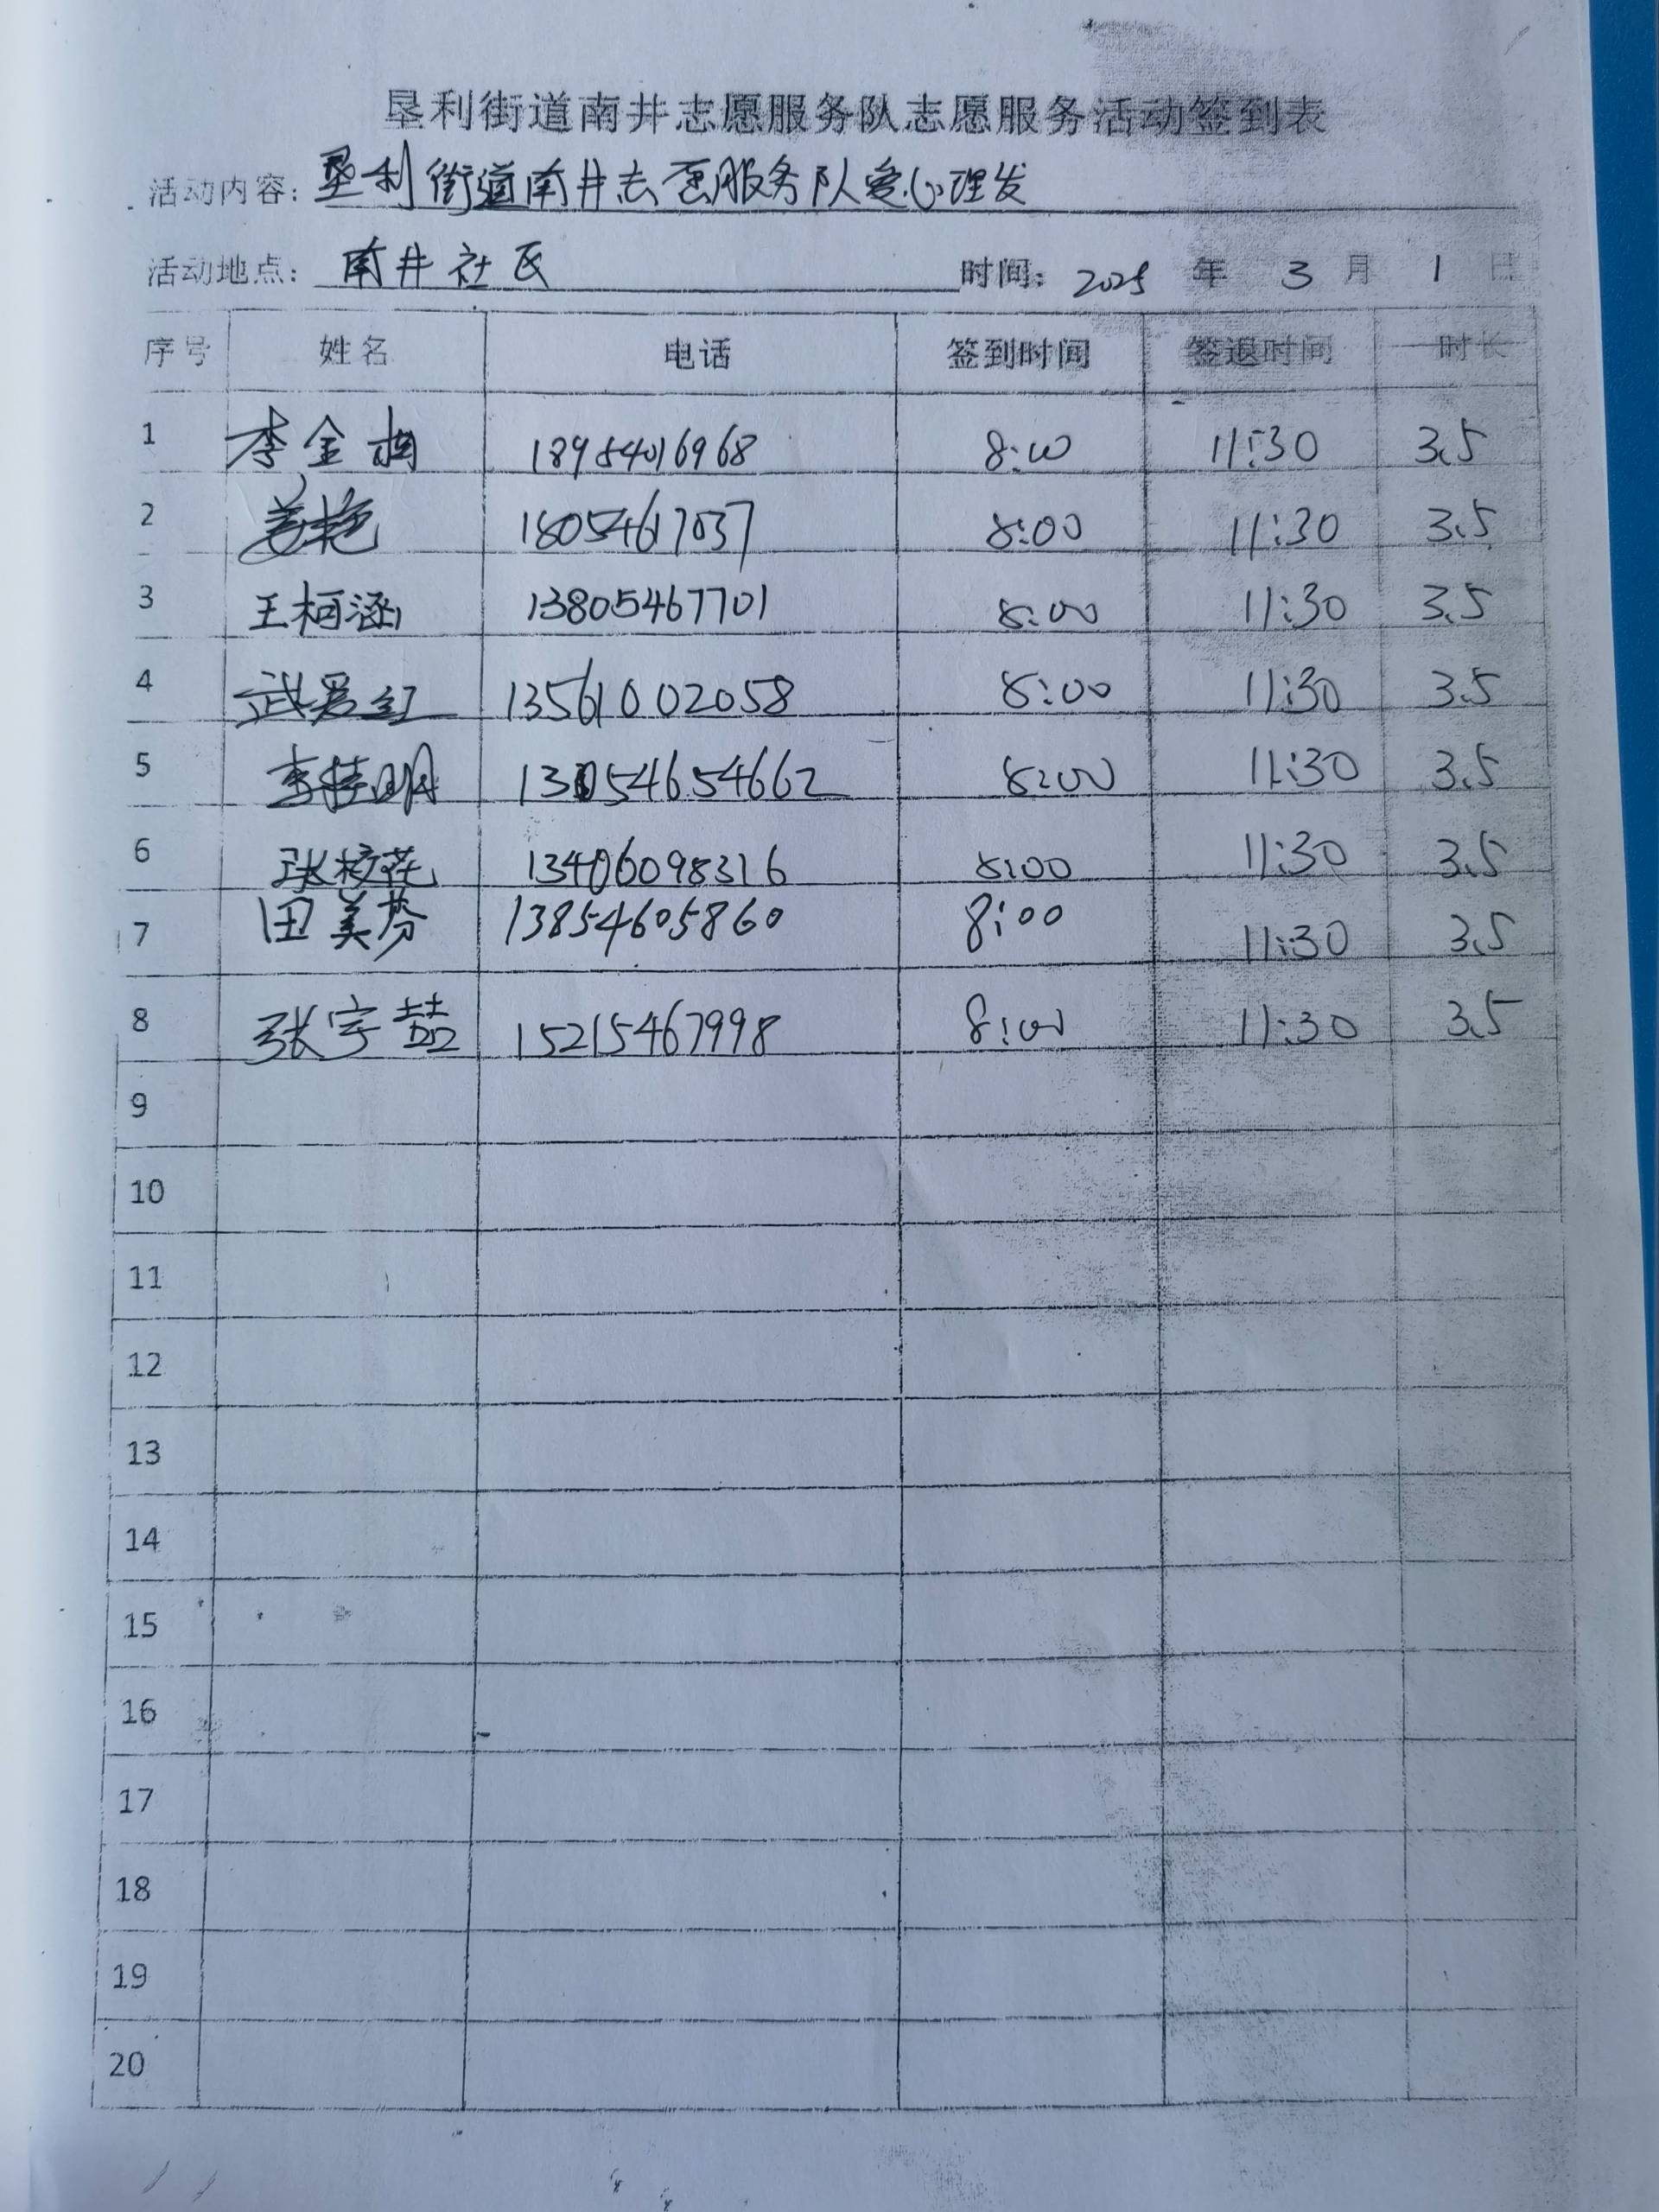 垦利街道南井志愿服务队志愿服务活动签到表
活动内容：垦利街道南井志愿服务队爱心理发
活动地点：南井社区 时间：2025 年 3 月 1 日
序号 姓名 电话 签到时间 签退时间 时长
1 李金 18954016968 8:00 11:30 3.5
2 姜艳 18054617037 8:00 11:30 3.5
3 王柯涵 13805467701 8:00 11:30 3.5
4 武爱红 13561002058 8:00 11:30 3.5
5 李桂明 13054654662 8:00 11:30 3.5
6 张花 13406098316 8:00 11:30 3.5
7 田美芬 13854605860 8:00 11:30 3.5
8 张宇喆 15215467998 8:00 11:30 3.5
9
10
11
12
13
14
15
16
17
18
19
20